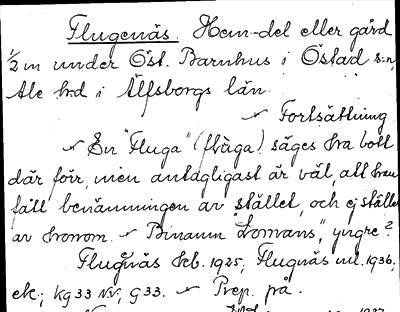 Flugenäs. Hem-del eller gård
1/2 m under Öst. Barnhus i Östad s:n,
Ale h:d i Älfsborgs län.
Fortsättning
En "Fluga" (flũga) säges ha bott
där förr, men antagligast är väl, att han
fått benämningen av stället, och ej stället
av honom. Binamn "Lomans," yngre?
Flugnäs Geb. 1925, Flugnäs ml. 1936,
ek; kg 33 NV; G 33. Prep. på.